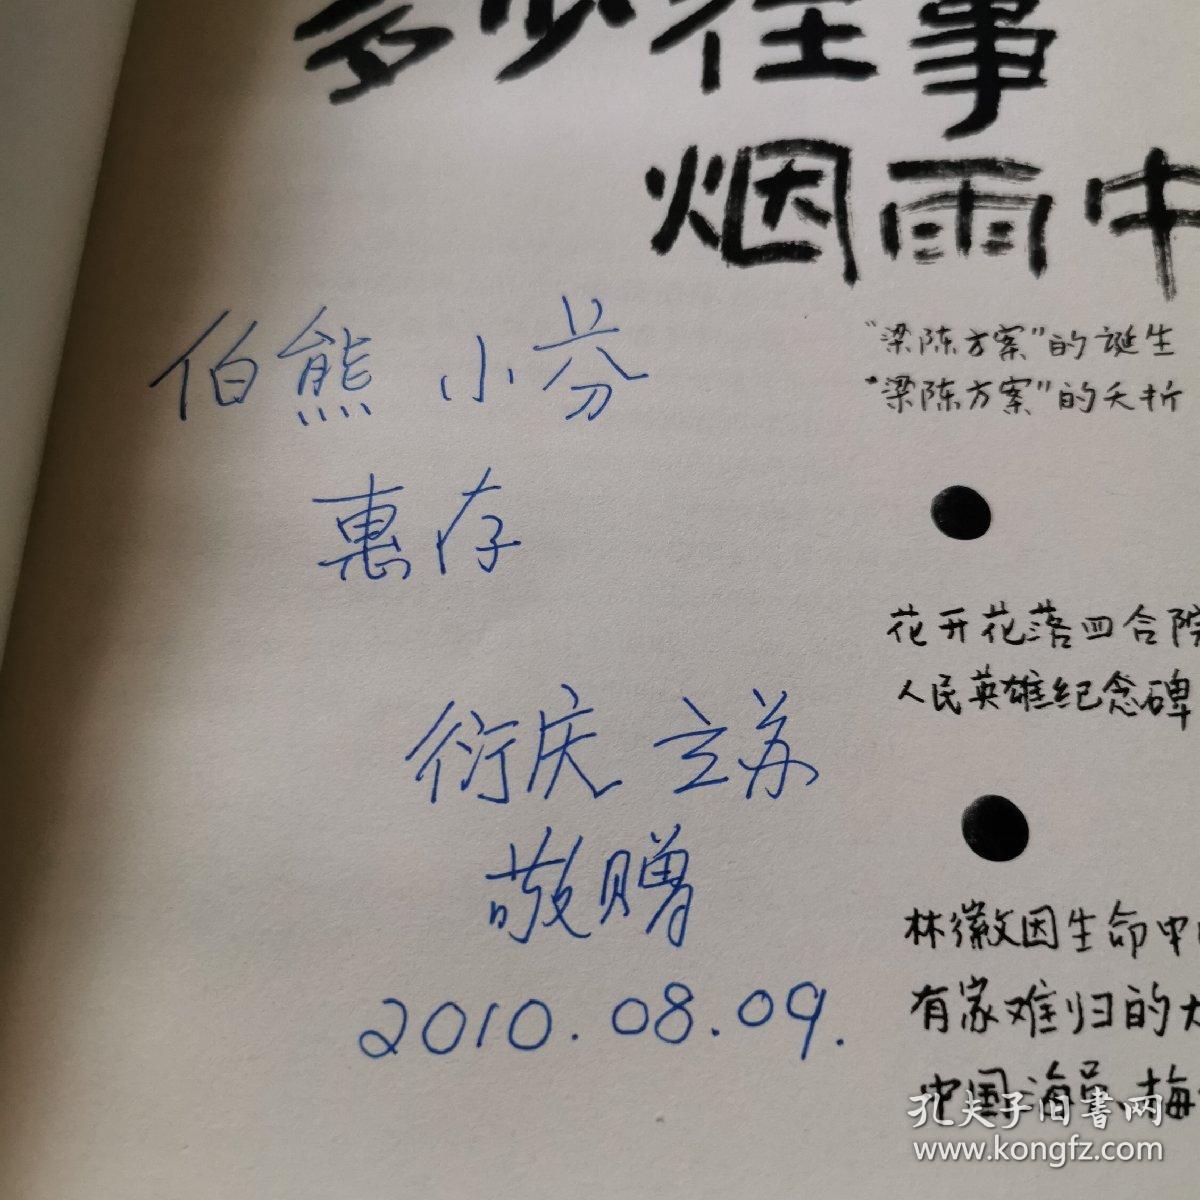 多少往事
烟雨中
"梁陈方案"的诞生
"梁陈方案"的夭折
伯熊 小芬
惠存
花开花落四合院
人民英雄纪念碑
衍庆 立苏
敬赠
2010.08.09.
林徽因生命中
有家难归的
中国海员、梅
孔夫子旧书网
www.kongfz.com